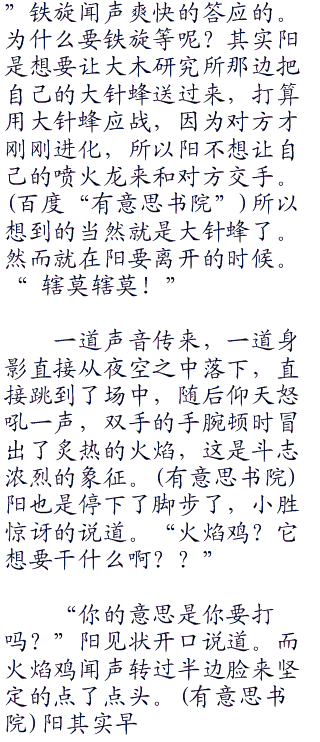 ”铁旋闻声爽快的答应的。
为什么要铁旋等呢？其实阳
是想要让大木研究所那边把
自己的大针蜂送过来，打算
用大针蜂应战，因为对方才
刚刚进化，所以阳不想让自
己的喷火龙来和对方交手。
(百度“有意思书院”)所以
想到的当然就是大针蜂了。
然而就在阳要离开的时候。
“ 辖莫辖莫！”
一道声音传来，一道身
影直接从夜空之中落下，直
接跳到了场中，随后仰天怒
吼一声，双手的手腕顿时冒
出了炙热的火焰，这是斗志
浓烈的象征。(有意思书院)
阳也是停下了脚步了，小胜
惊讶的说道。“火焰鸡？它
想要干什么啊？？”
“你的意思是你要打
吗？”阳见状开口说道。而
火焰鸡闻声转过半边脸来坚
定的点了点头。(有意思书
院)阳其实早